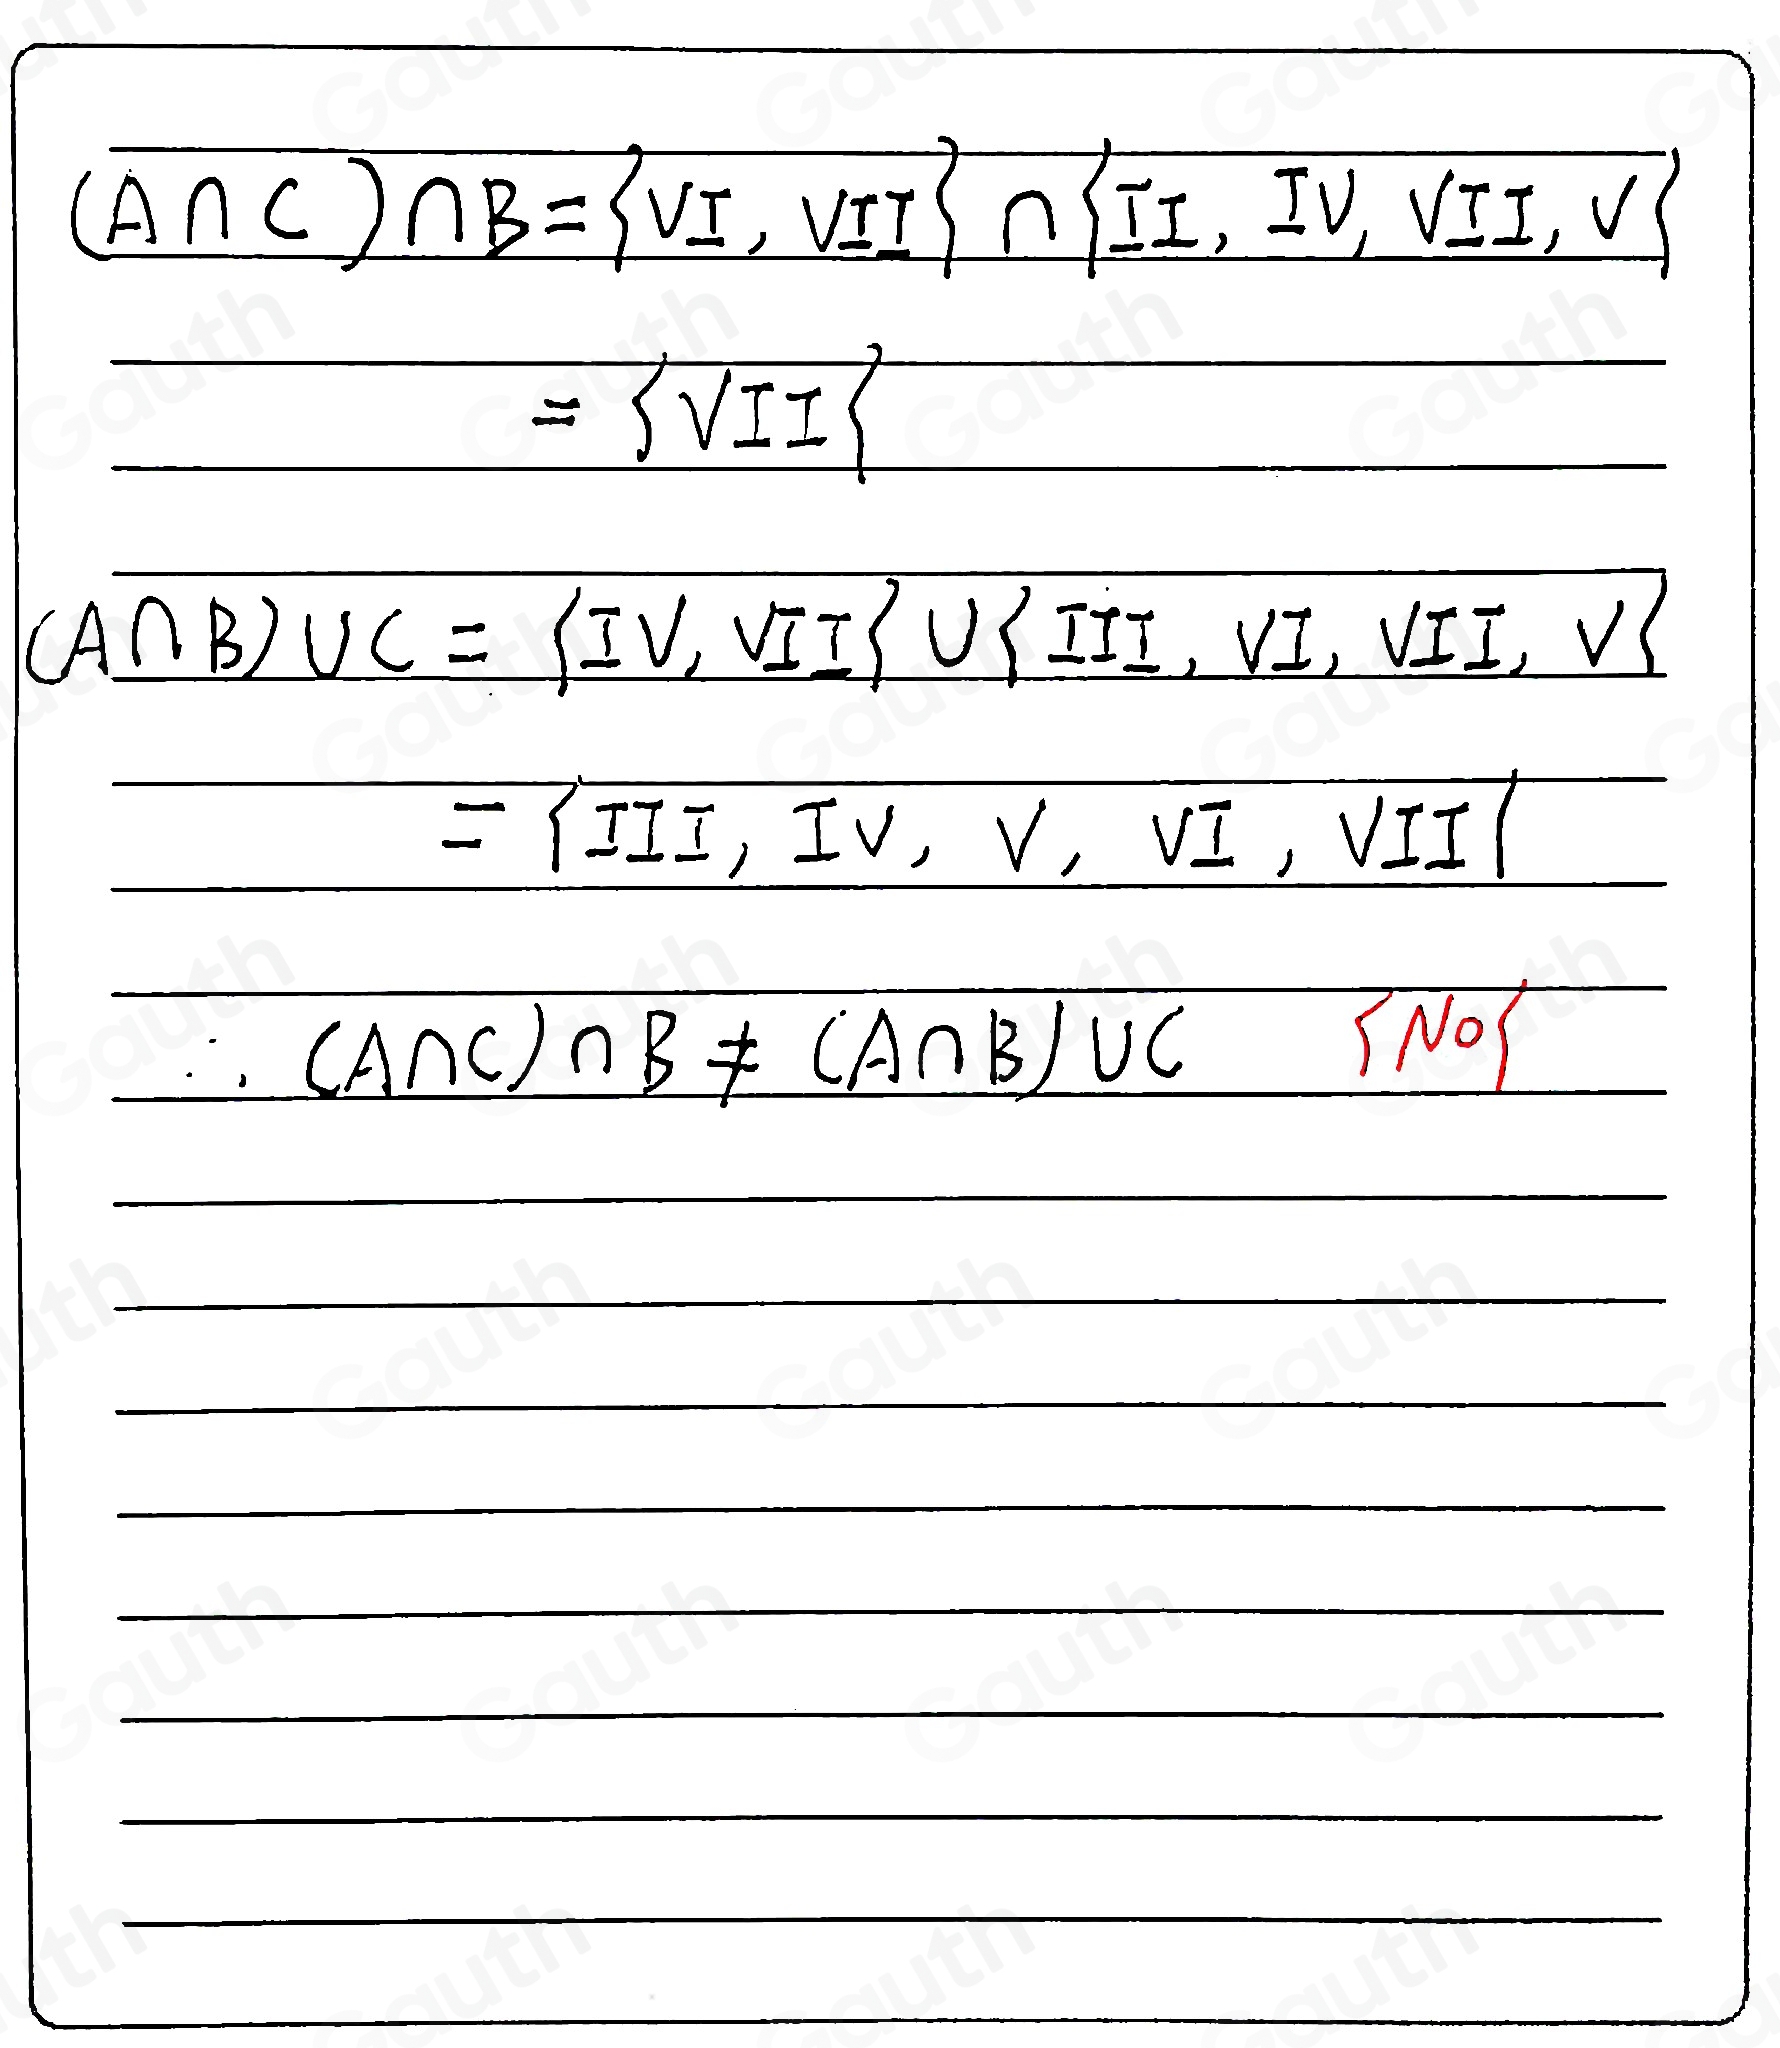 (A∩C)∩B={VI, VII}∩{II, IV, VII, V}
={VII}
(A∩B)∪C={IV, VII}∪{III, VI, VII, V}
={III, IV, V, VI, VII}
∴ (A∩C)∩B≠(A∩B)∪C {No}